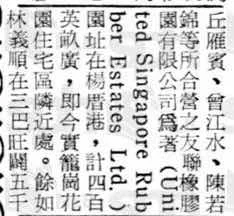 丘雁賓、曾江水、陳若
錦等所合營之友聯橡膠
園有限公司爲著（Uni
ted Singapore Rub
ber Estates Ltd.）
園址在楊厝港，計四百
英畝廣，即今實籠崗花
園住宅區隣近處。餘如
林義順在三巴旺闢五千